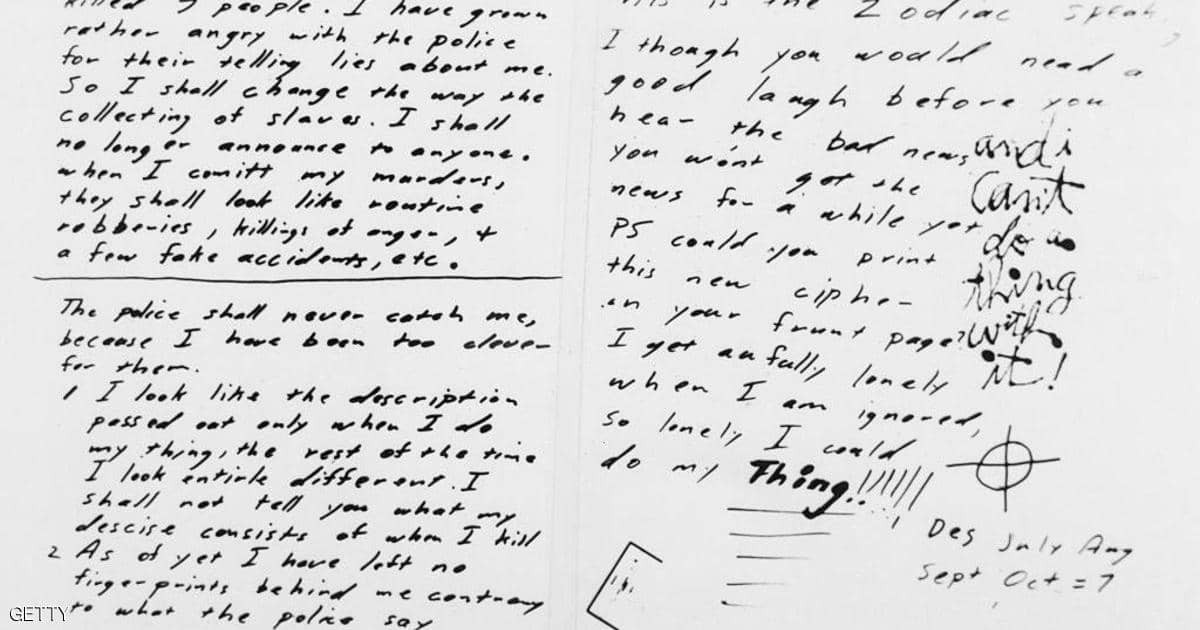 killed 7 people. I have grown
rather angry with the police
for their telling lies about me.
So I shall change the way the
collecting of slaves. I shall
no longer announce to anyone.
when I comitt my murders,
they shall look like routine
robberies, killings of anger, +
a few fake accidents, etc.
The police shall never catch me,
because I have been too clever
for them.
1 I look like the description
passed out only when I do
my thing, the rest of the time
I look entirle different. I
shall not tell you what my
descise consists of when I kill
2 As of yet I have left no
fingerprints behind me contrary
to what the police say
This is the Zodiac speak
I though you would nead a
good laugh before you
hear the bad news
you won't get the
news for a while yet
PS could you print
this new cipher
in your frunt page?
I get aufully lonely
when I am ignored,
so lonely I could
do my Thing!!!!!!
and i
can't
do a
thing
with
it!
Des July Aug
Sept Oct = 7
GETTY